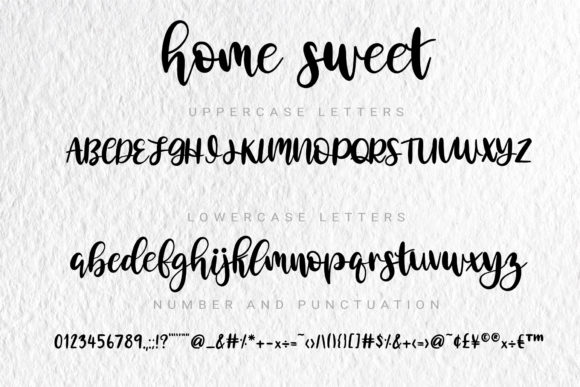 home sweet
UPPERCASE LETTERS
ABCDEFGHIJKLMNOPQRSTUVWXYZ
LOWERCASE LETTERS
abcdefghijklmnopqrstuvwxyz
NUMBER AND PUNCTUATION
0123456789.,:;!?""''""@_&#/%*+-x÷=~<>/\|(){}[]#$%&+<=>@~¢£¥©®x÷€™